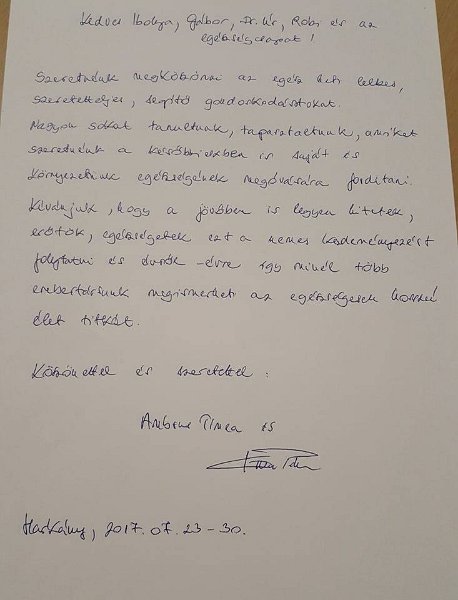 Kedves Ibolya, Gábor, Dr. Úr, Robi és az
egészségcsapat!
Szeretnénk megköszönni az egész heti lelkes,
szeretetteljes, segítő gondoskodástokat.
Nagyon sokat tanultunk, tapasztaltunk, amiket
szeretnénk a későbbiekben is saját és
környezetünk egészségének megóvására fordítani.
Kívánjuk, hogy a jövőben is legyen hitetek,
erőtök, egészségetek ezt a nemes kezdeményezést
folytatni és évről-évre így minél több
embertársunk megismerheti az egészségesen hosszú
élet titkát.
Köszönettel és szeretettel:
Tímea és
Harkány, 2017. 07. 23-30.